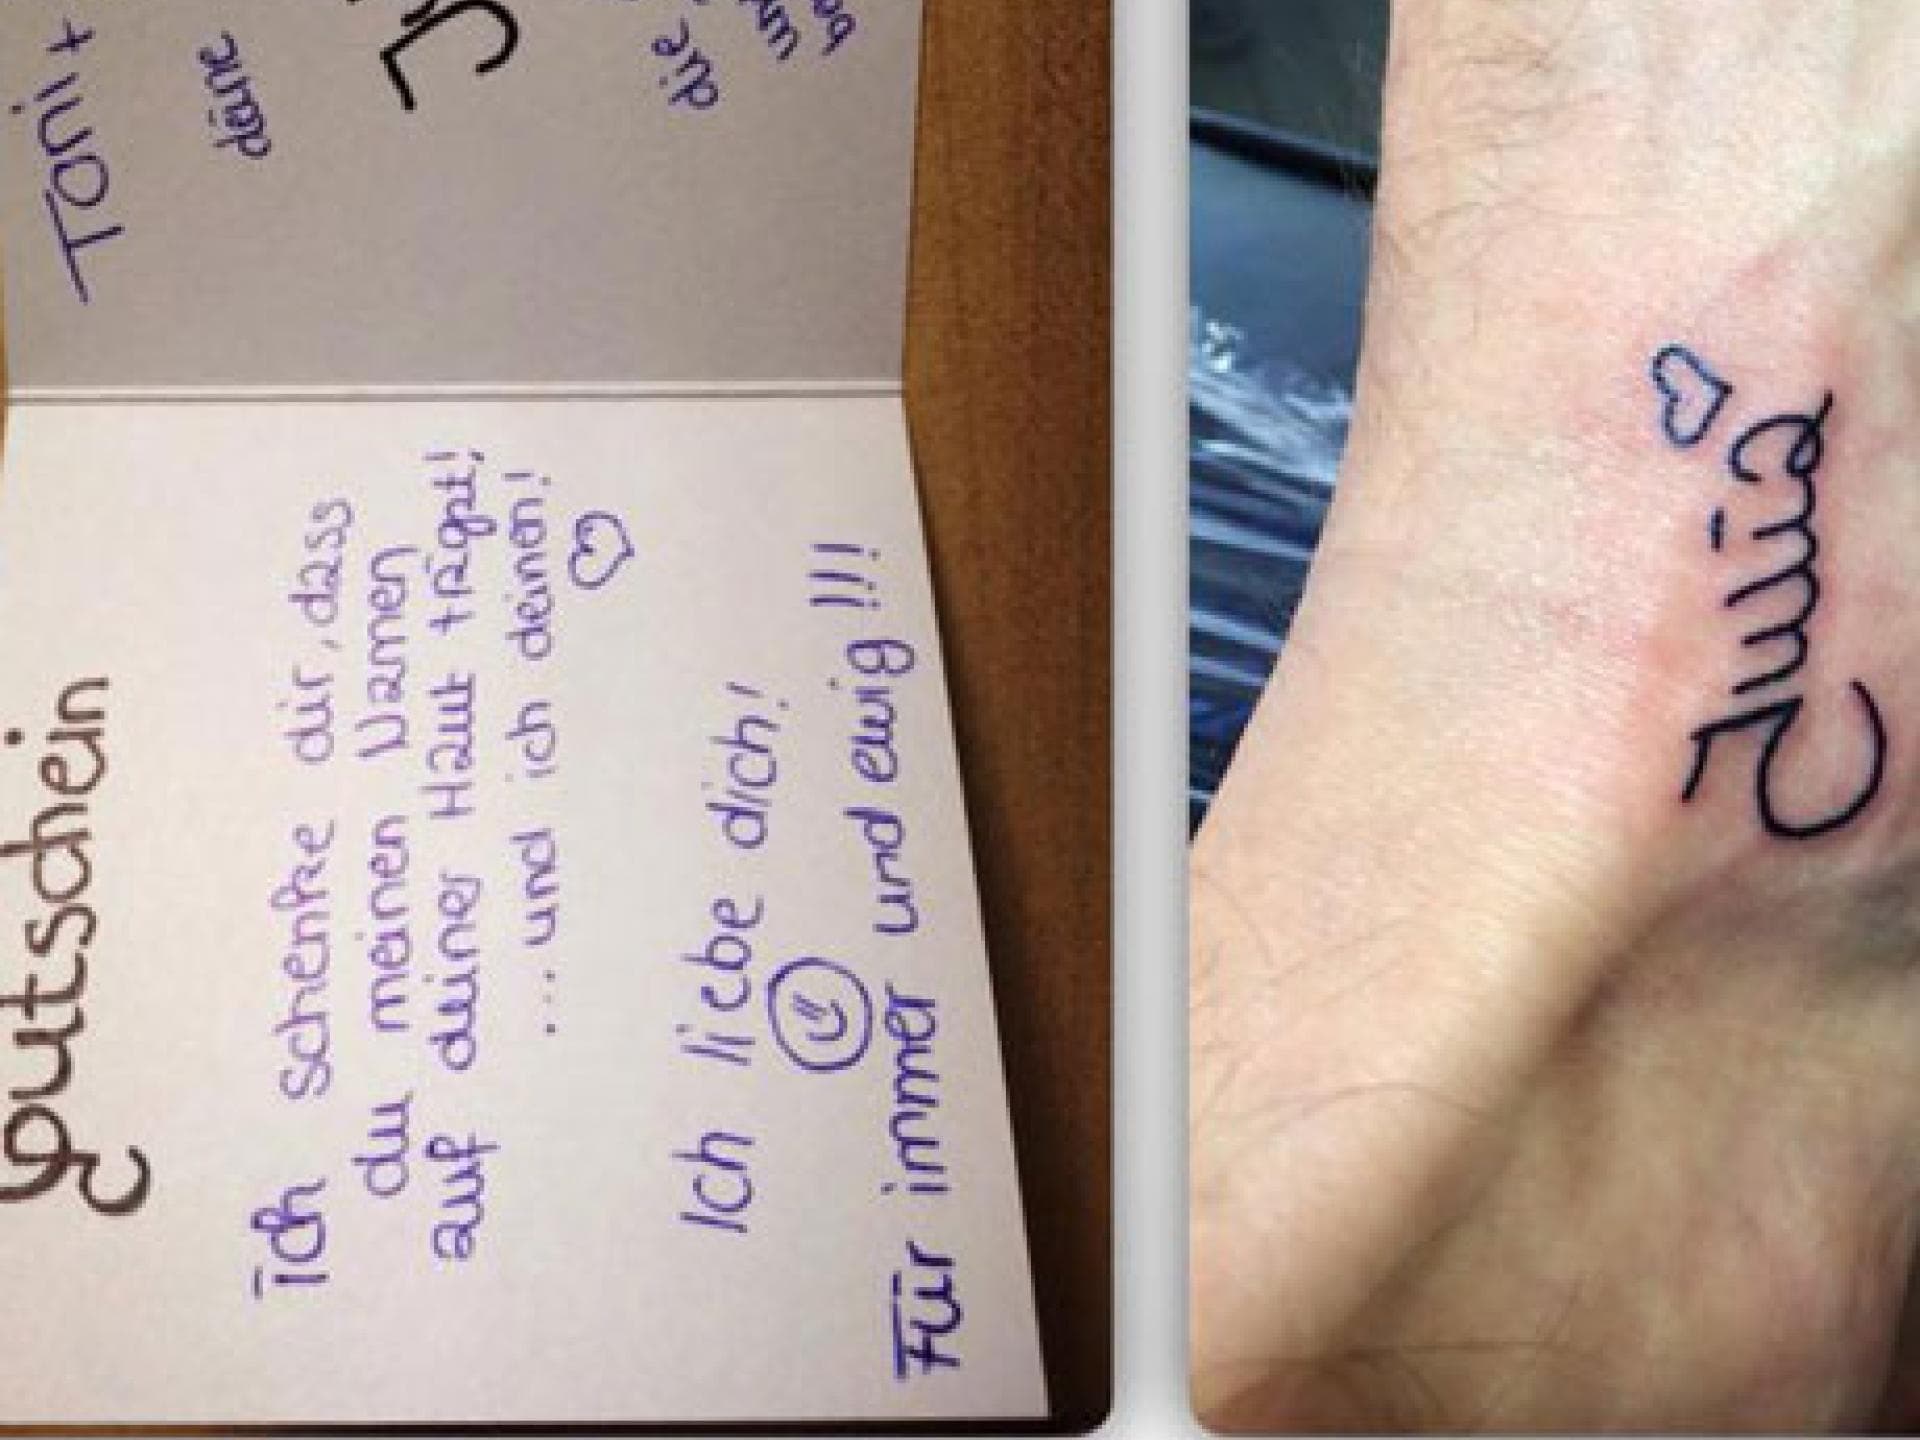 Gutschein
Ich schenke dir, dass
du meinen Namen
auf deiner Haut trägst!
... und ich deinen!
Ich liebe dich!
Für immer und ewig!!!
Toni +
deine
die